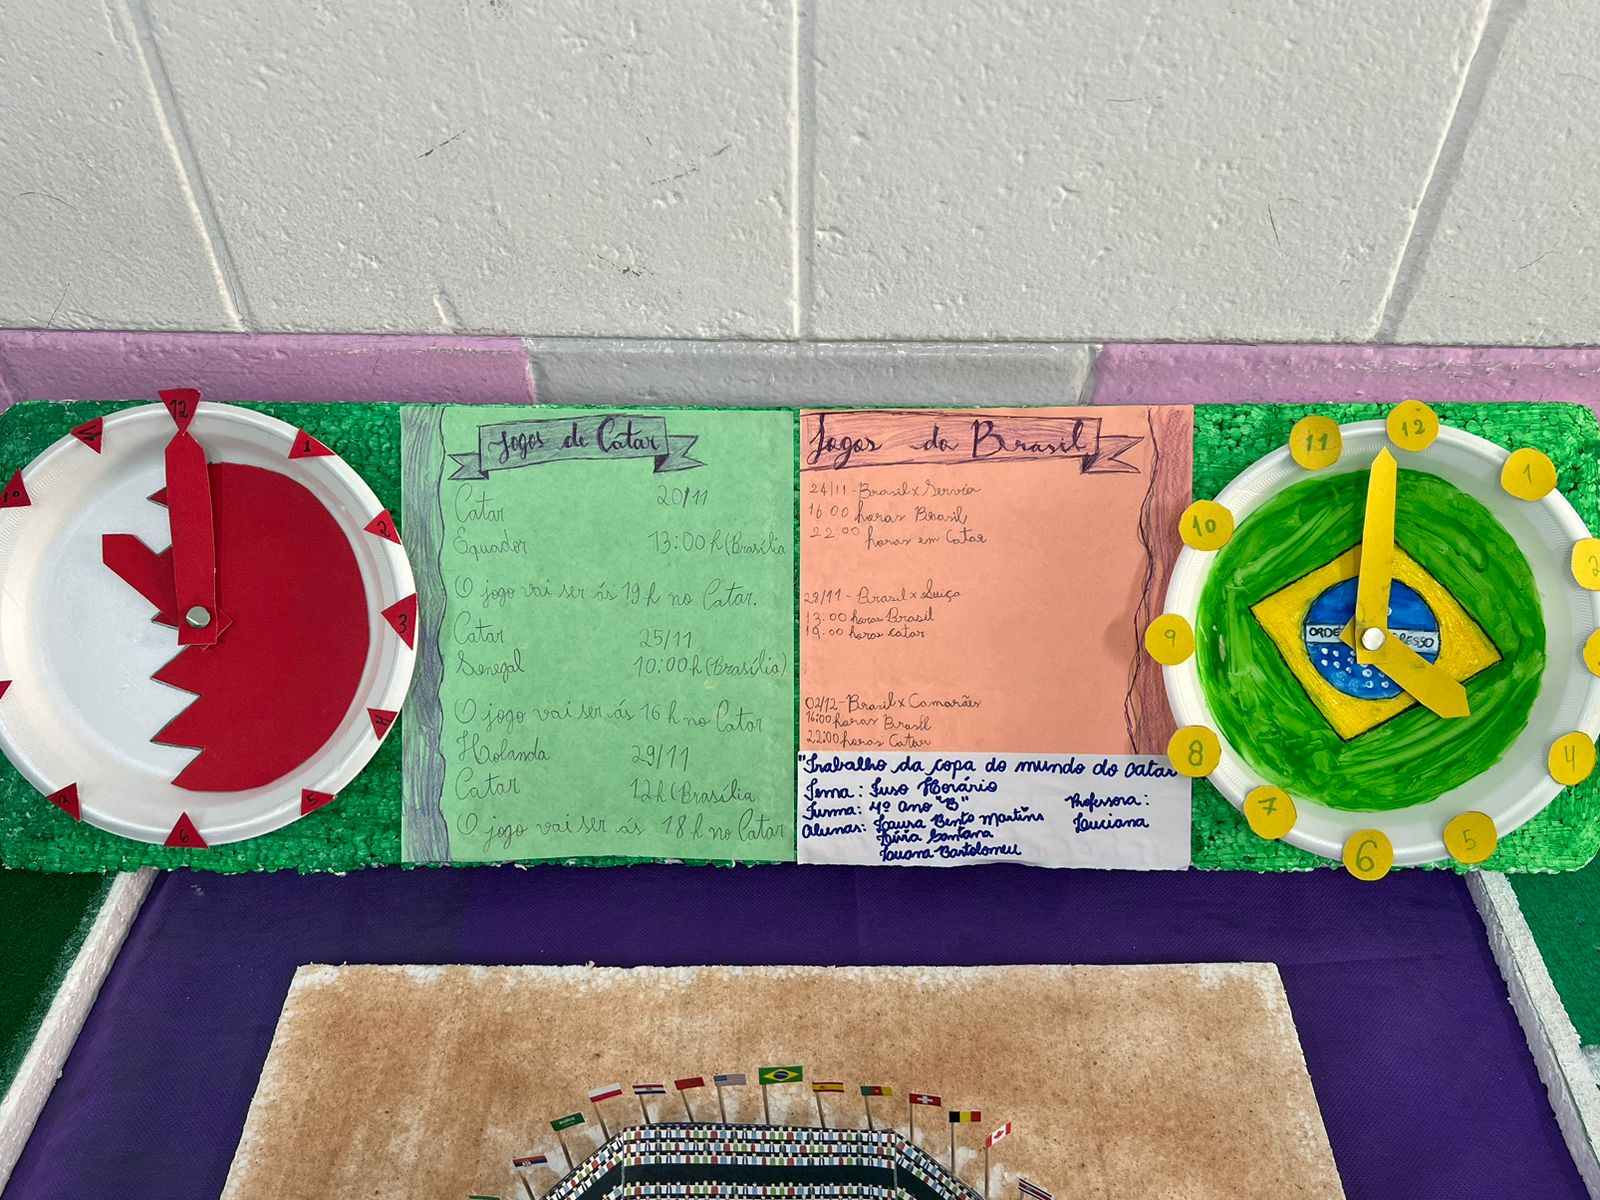 12
11
1
10
2
3
4
7
5
6
Jogos de Catar
Catar 20/11
Equador 13:00 h (Brasília
O jogo vai ser ás 19 h no Catar.
Catar 25/11
Senegal 10:00 h (Brasília)
O jogo vai ser ás 16 h no Catar
Holanda 29/11
Catar 12 h (Brasília
O jogo vai ser ás 18 h no Catar
Jogos do Brasil
24/11 - Brasil x Servia
16:00 horas Brasil
22:00 horas em Catar
28/11 - Brasil x Suiça
13:00 horas Brasil
19:00 horas catar
02/12 - Brasil x Camarães
16:00 horas Brasil
22:00 horas Catar
"Trabalho da copa do mundo do catar
Tema: Fuso Horário
Turma: 4º ano "B" Professora:
Alunas: Laura Bento Martins Luciana
Lívia Santana
Luana Bartolomeu
12
11
1
10
2
9
8
4
7
5
6